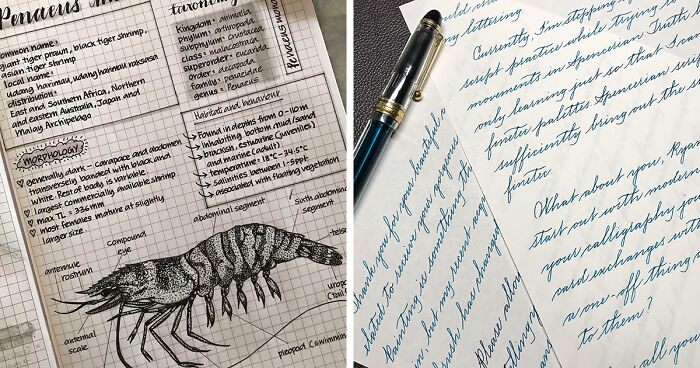 Penaeus
Common name:
giant tiger prawn, black tiger shrimp,
asian tiger shrimp
local name:
udang harimau, udang harimau raksasa
distribution:
East and Southern Africa, Northern
and eastern Australia, Japan and
Malay Archipelago
taxonomy
Kingdom: animalia
Phylum: arthropoda
subphylum: crustacea
class: malacostraca
superorder: eucarida
order: decapoda
family: penaeidae
genus: Penaeus
Penaeus
MORPHOLOGY
generally dark - carapace and abdomen
transversely banded with black and
white. Rest of body is variable.
largest commercially available shrimp
max TL = 336mm
most females mature at slightly
larger size.
Habitat and behaviour
Found in depths from 0-110m
inhabiting bottom mud/sand
brackish, estuarine (juveniles)
and marine (adult)
temperature = 18°C-34.5°C
salinities between 1-5ppt
associated with floating vegetation
abdominal segment
sixth abdominal
segment
compound
eye
antennule
rostrum
antennal
scale
pleopod (swimming
Thank you for your beautiful
elated to receive your gorgeous
Painting is something
in, but my recent
brush has changed
Please allow
lettering
Currently I'm stepping
script practice while trying to
movements in Spencerian. Truth
only learning just so that I can
finetec palettes. Spencerian
sufficiently bring out the
finetec
What about you, Ryan
start out with modern
your calligraphy
card exchanges with
a one-off thing
to them?
all you